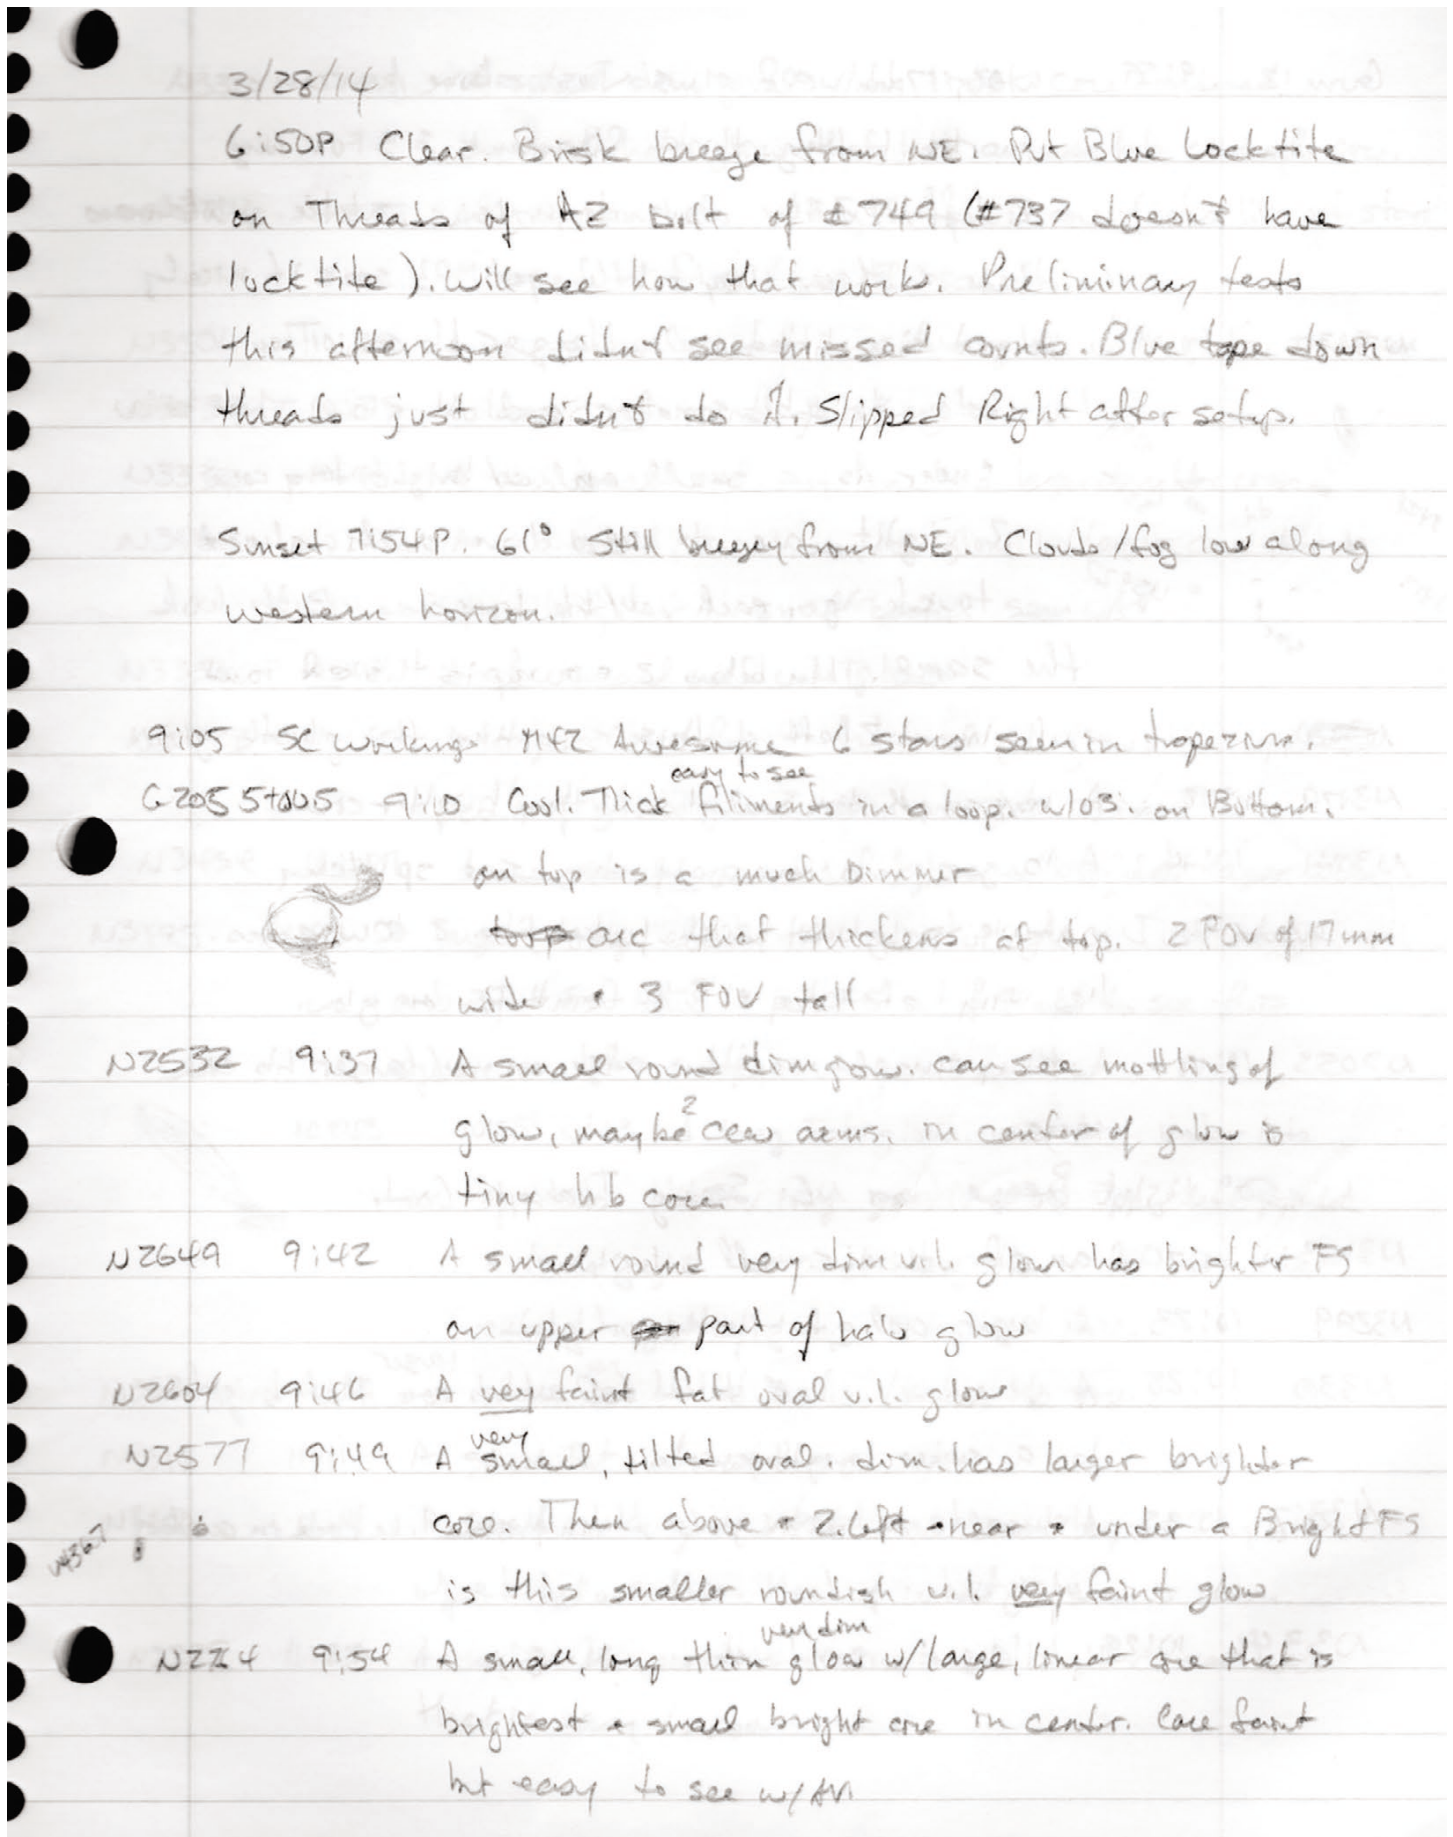 3/28/14
6:50P Clear. Brisk breeze from NE. Put Blue Locktite
on Threads of AZ bolt of #749 (#737 doesn't have
locktite). Will see how that works. Preliminary tests
this afternoon didn't see missed counts. Blue tape down
threads just didn't do it. Slipped Right after setup.
Sunset 7:54P. 61° Still breezey from NE. Clouds/fog low along
western horizon.
9:05 SC working M42 Awesome 6 stars seen in trapezium.
easy to see
G205.5+00.5 9:10 Cool. Thick filiments in a loop. w/O3. on Bottom.
on top is a much Dimmer
arc that thickens at top. 2 FOV of 17mm
wide + 3 FOV tall
N2532 9:37 A small round dim glow. can see mottling of
glow, maybe 2 ccw arms. in center of glow is
tiny hb core.
N2649 9:42 A small round very dim v.l. glow has brighter FS
on upper part of halo glow
N2604 9:46 A very faint fat oval v.l. glow
very
N2577 9:49 A small, tilted oval. dim. has larger brighter
core. Then above + 2.left + near + under a Bright FS
U4367
is this smaller roundish v.l. very faint glow
very dim
9:54 A small, long thin glow w/large, linear core that is
brightest + small bright core in center. Core faint
but easy to see w/AV.